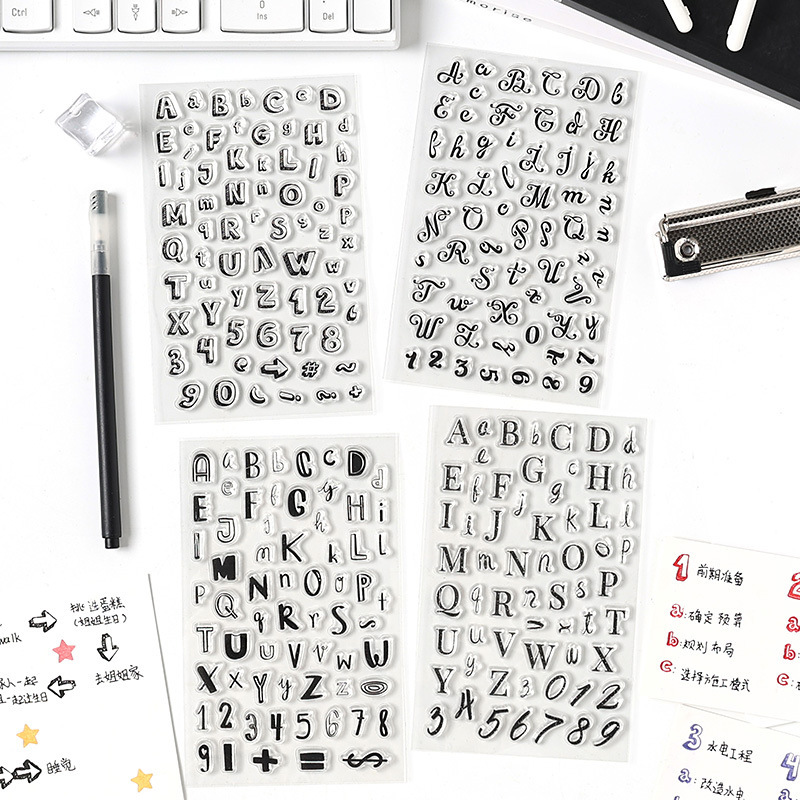 Ctrl
0
Ins
.
Del
morise
A a B b C c D
E e F f G g H d
I j J K k L l h
M m N n O o P
Q q R r S s z p x
T t U V W w v
X u y Y Z 1 2 6
3 4 5 6 7 8
c → # ~
9 0 ( ! ? +
A a B C D b
E e c F G d H
f h g i I J j k
K L l M m n
N O c P p Q u
s R q S t U z
T w X v
W Z y o Y y
1 2 3 5 6 8 7 9
A a B b C c D d
E e F f G g y H i
I J j h K k L l
M m N n O o P t
p Q q R r S s ~
T U u V v w W
X x Y y Z z
1 2 3 4 5 6 7 8
9 1 + = $
A a B b C D d
E e F f G c H h
I i J j K k L l
M m N n O o p
Q q R r S s P
U u V W w t T
Y y Z 3 X x
3 4 5 6 7 8 9 0 1 2
walk
挑选蛋糕
(姐姐生日)
去姐姐家
家人一起
一起过生日
睡觉
1 前期准备
a:确定预算
b:规划布局
c:选择施工模式
2
3 水电工程
a:改造水电
4